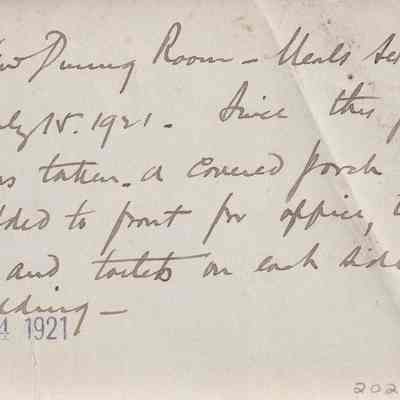 Dining Room - Meals se
July 15. 1921. Since this p
as taken - a covered porch
dded to front for office, t
and toilets on each side
lding -
4 1921
202